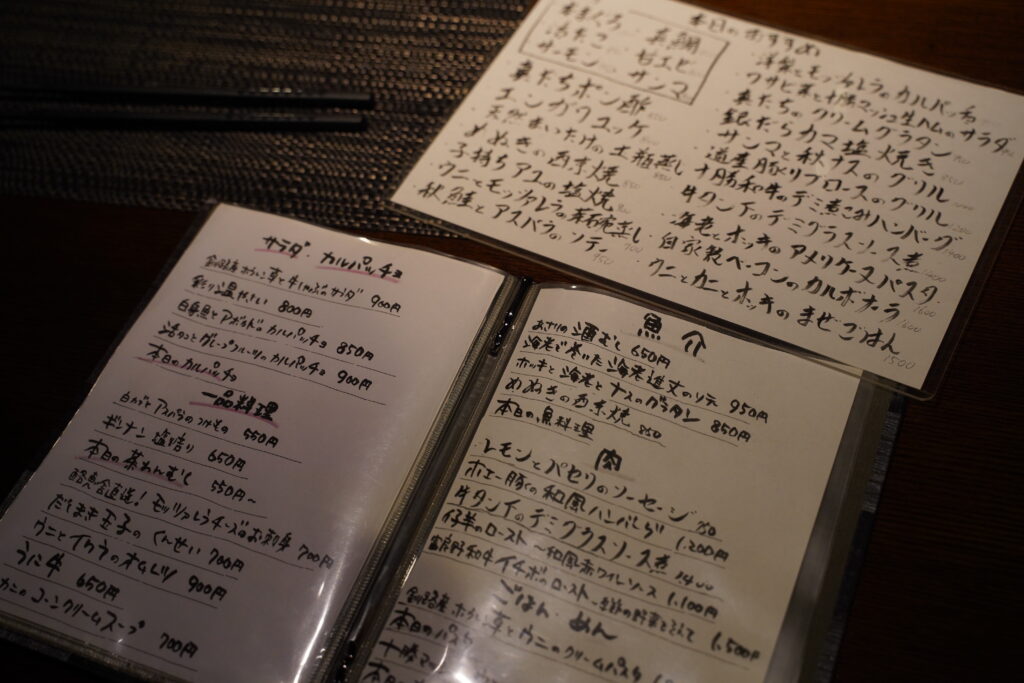 本日のおすすめ
本まぐろ 真鯛
活たこ 甘エビ
サーモン サンマ
真だちポン酢
エンガワユッケ
天然まいたけの土瓶蒸し
めぬきの西京焼
子持ちアユの塩焼
ウニとモッツァレラの茶碗蒸し
秋鮭とアスパラのソテー 950
洋梨とモッツァレラのカルパッチョ
ワサビ菜と十勝マッシュ生ハムのサラダ
真だちのクリームグラタン
銀だらカマ塩焼き
サンマと秋ナスのグリル
道産豚リブロースのグリル
十勝和牛のデミ煮こみハンバーグ
牛タン下のデミグラスソース煮 1400
海老とホッキのアメリケーヌパスタ
自家製ベーコンのカルボナーラ 1600
ウニとカニとホッキのまぜごはん 1500
サラダ・カルパッチョ
釧路産ホウレン草と牛しゃぶのサラダ 900円
彩り温やさい 800円
白身魚とアボカドのカルパッチョ 850円
活タコとグレープフルーツのカルパッチョ 900円
本日のカルパッチョ
一品料理
アスパラの 550円
ギンナン塩煎り 650円
本日の茶わんむし 550円〜
酪農舎直送!モッツァレラチーズのお刺身 700円
だしまき玉子のくんせい 700円
ウニとイクラのオムレツ 900円
うに牛 650円
カニのコーンクリームスープ 700円
魚介
あさりの酒むし 650円
海老で巻いた海老進丈のソテー 950円
ホッキと海老とナスのグラタン 850円
めぬきの西京焼 850
本日の魚料理
肉
レモンとパセリのソーセージ 750
ホエー豚の和風ハンバーグ 1,200円
牛タン下のデミグラスソース煮 1400
仔羊のロースト〜和風赤ワインソース 1,100円
富良野和牛イチボのロースト 季節の野菜をそえて 1,500円
ごはん・めん
釧路産ホウレン草とウニのクリームパスタ
本日のパスタ
十勝マッ
本日